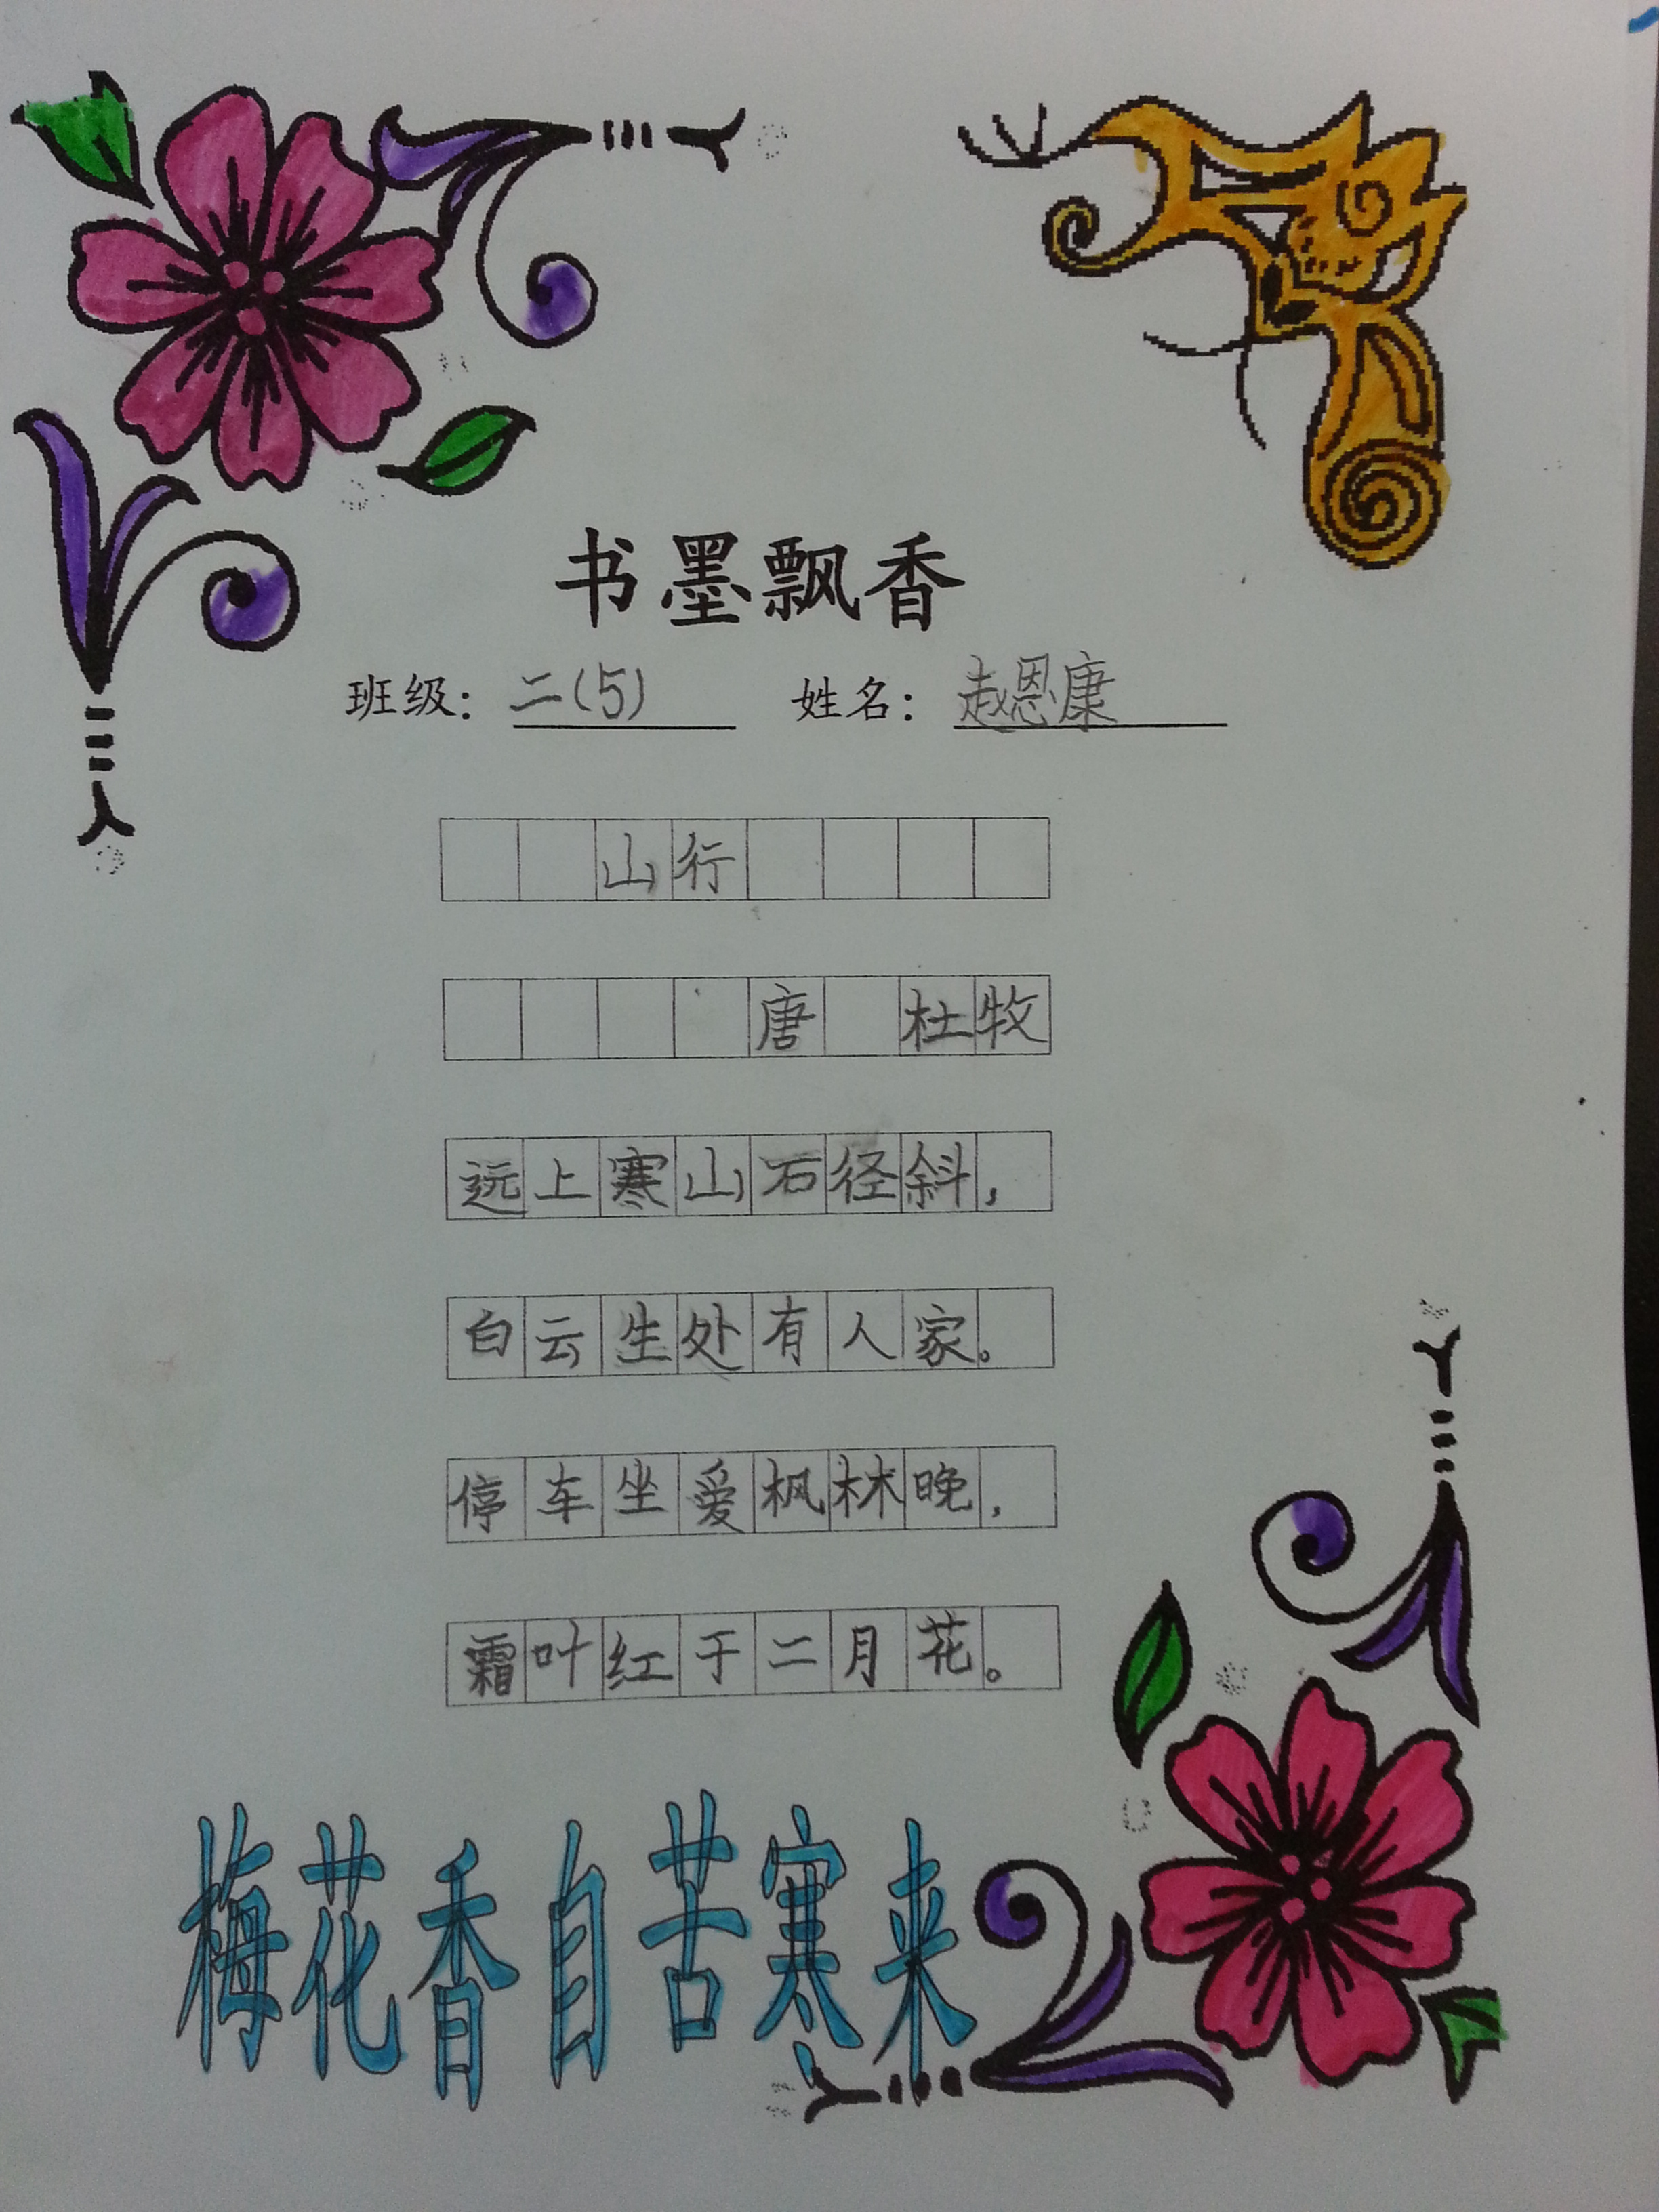 书墨飘香
班级：二(5) 姓名：赵恩康
山行
唐 杜牧
远上寒山石径斜，
白云生处有人家。
停车坐爱枫林晚，
霜叶红于二月花。
梅花香自苦寒来